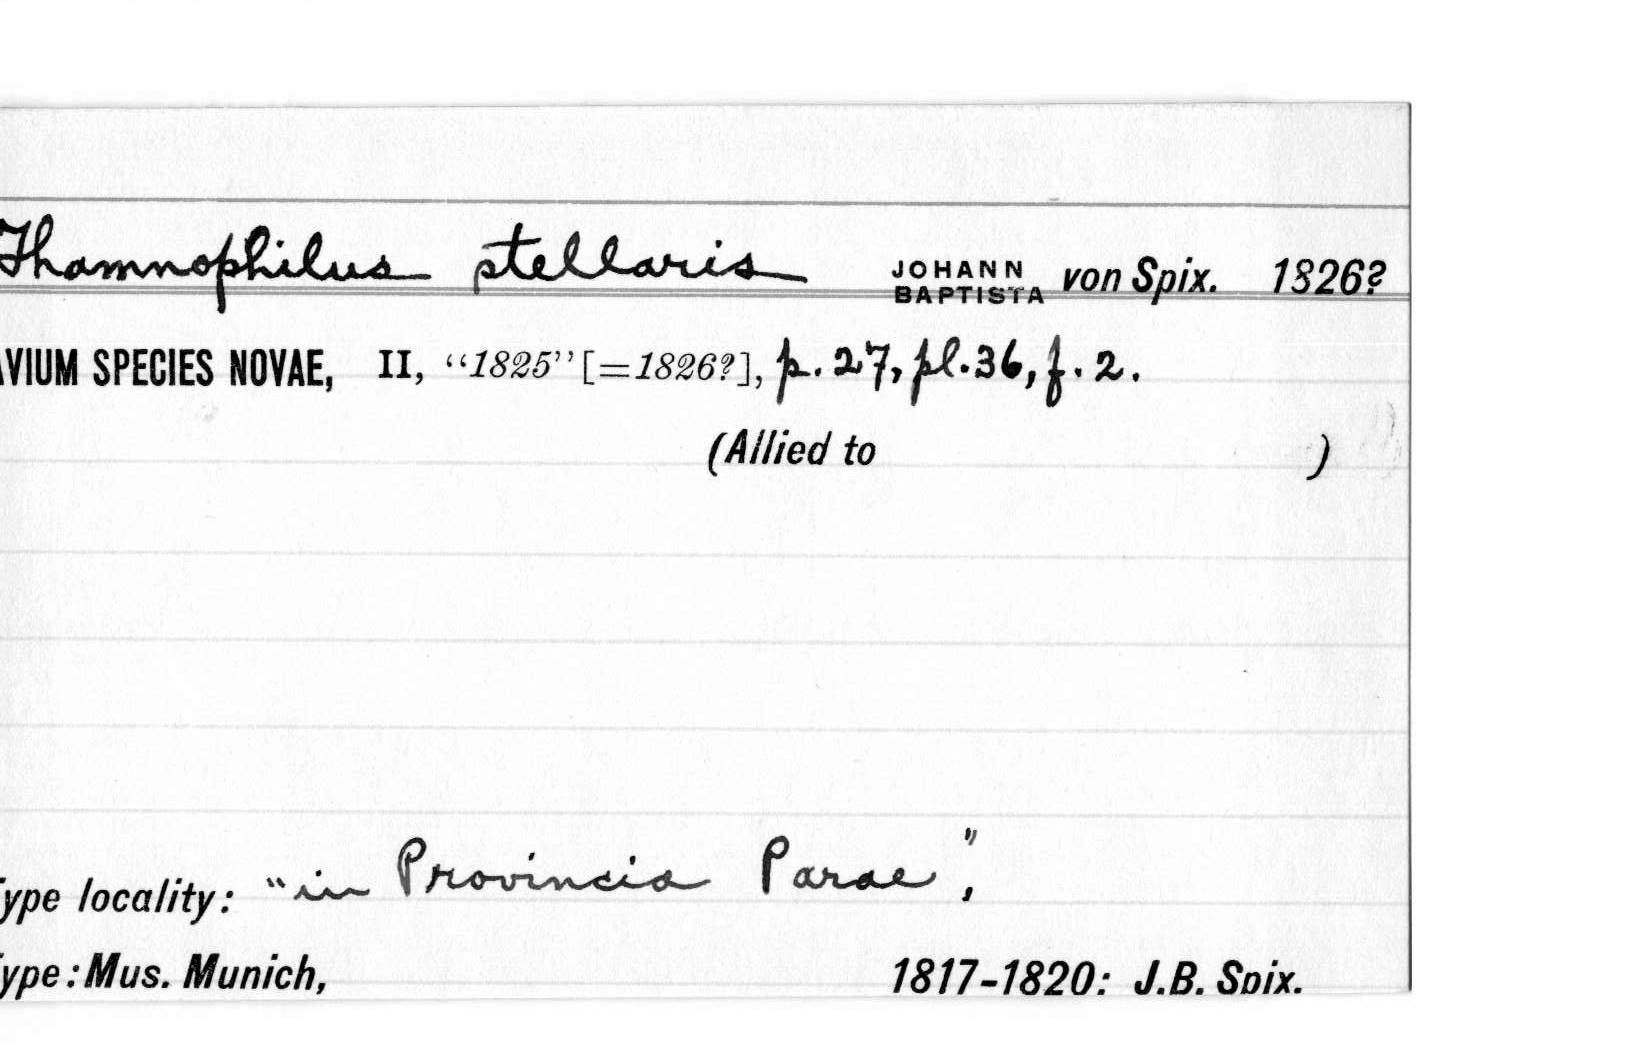 Thamnophilus stellaris JOHANN BAPTISTA von Spix. 1826?
AVIUM SPECIES NOVAE, II, "1825" [=1826?], p. 27, pl. 36, f. 2.
(Allied to )
Type locality: "in Provincia Parae",
Type: Mus. Munich, 1817-1820: J.B. Spix.